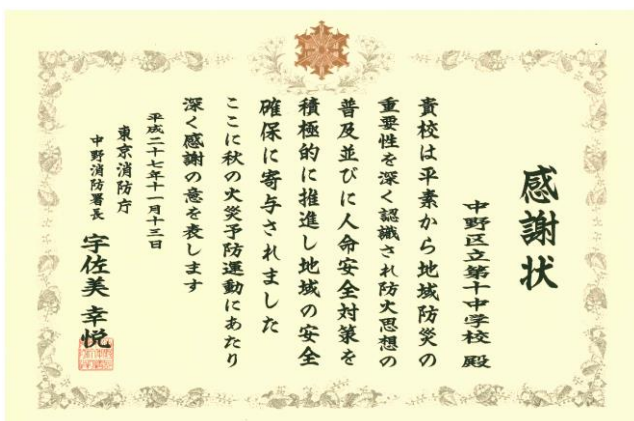 感謝状
中野区立第十中学校 殿
貴校は平素から地域防災の
重要性を深く認識され防火思想の
普及並びに人命安全対策を
積極的に推進し地域の安全
確保に寄与されました
ここに秋の火災予防運動にあたり
深く感謝の意を表します
平成二十七年十一月十三日
東京消防庁
中野消防署長 宇佐美 幸悦